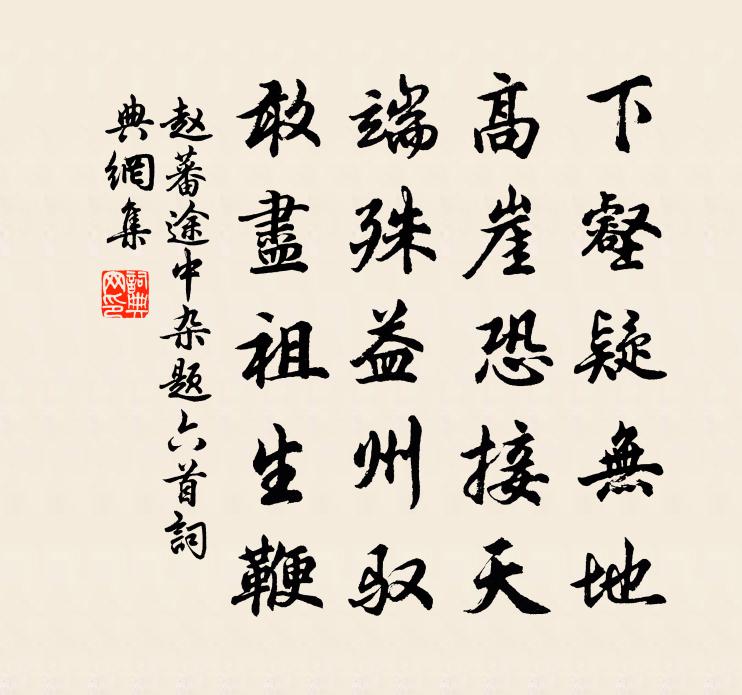 下壑疑無地
高崖恐接天
端殊益州馭
敢盡祖生鞭
赵蕃途中杂题六首詞
典網集
詞典
网印